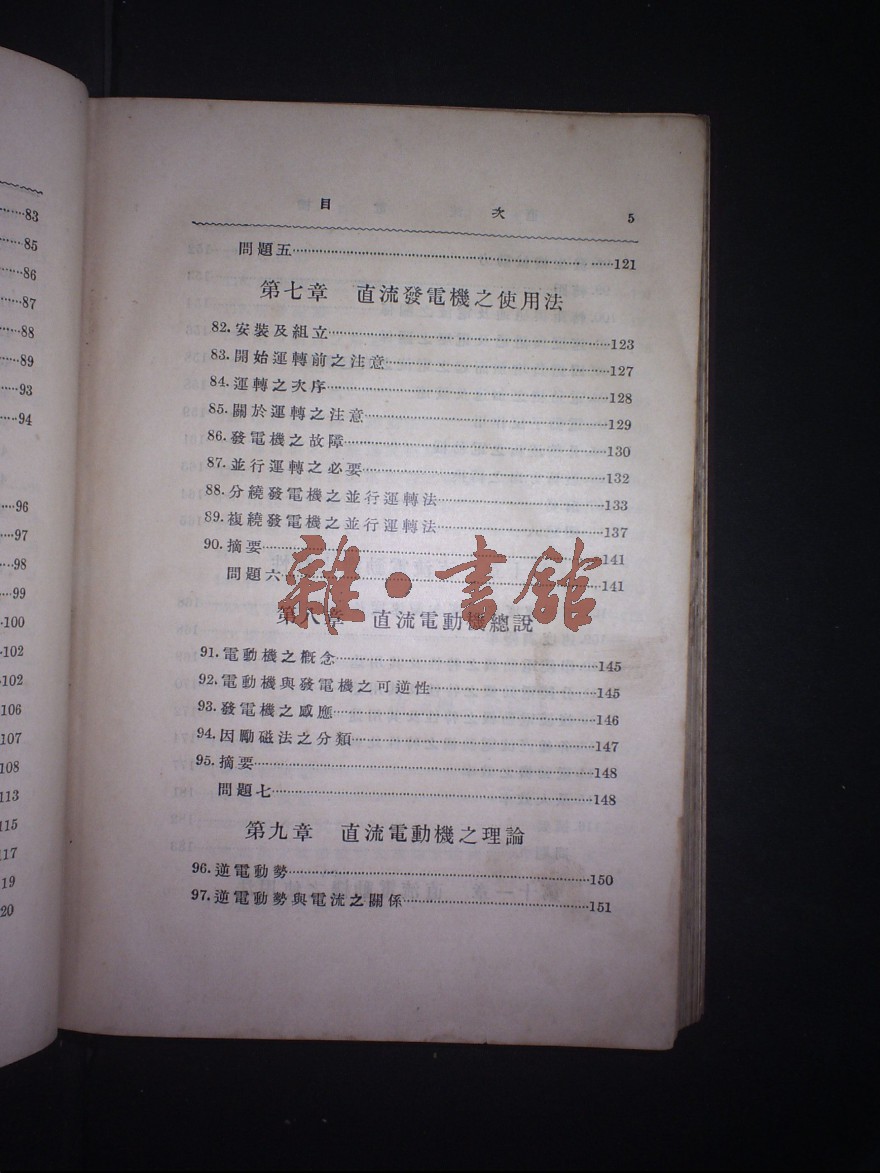 83
85
86
87
88
89
93
94
96
97
98
99
100
102
102
106
107
108
113
115
117
19
20
目 次 5
問題五……121
第七章 直流發電機之使用法
82.安裝及組立……123
83.開始運轉前之注意……127
84.運轉之次序……128
85.關於運轉之注意……129
86.發電機之故障……130
87.並行運轉之必要……132
88.分繞發電機之並行運轉法……133
89.複繞發電機之並行運轉法……137
90.摘要……141
問題六……141
雜·書館
第八章 直流電動機總說
91.電動機之概念……145
92.電動機與發電機之可逆性……145
93.發電機之感應……146
94.因勵磁法之分類……147
95.摘要……148
問題七……148
第九章 直流電動機之理論
96.逆電動勢……150
97.逆電動勢與電流之關係……151